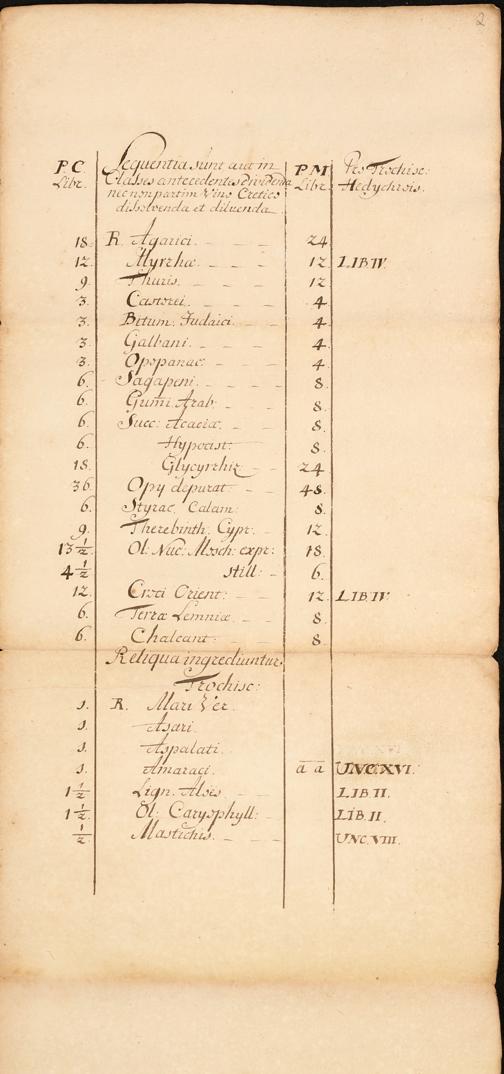 2
P.C. Sequentia sunt aut in P.M. Pro Trochisc:
Libr. Classes antecedentes dividenda Libr. Hedychrois.
nec non partim Vino Cretico
dissolvenda et diluenda
18. R. Agarici. 24
12. Myrrhæ. 12. LIB IV.
9. Thuris. 12
3. Castorei. 4
3. Bitum: Judaici 4.
3. Galbani. 4
3. Opopanac: 4.
6. Sagapeni. 8.
6. Gum̄i Arab. 8.
6. Succ: Acaciæ. 8.
6. Hypocist: 8.
18. Glycyrrhiz 24
36. Opy depurat: 48.
6. Styrac. Calam: 8.
9. Therebinth. Cypr. 12.
13 1/2. Ol: Nuc: Mosch: expr: 18.
4 1/2 still: 6.
12. Croci Orient: 12. LIB IV.
6. Terræ Lemniæ 8.
6. Chalcant: 8.
Reliqua ingrediuntur
Trochisc:
1. R. Mari Ver.
1. Asari.
1. Aspalati.
1. Amaraci. ā ā UNC. XVI.
1 1/2. Lign. Aloes LIB. II.
1 1/2. Ol: Caryophyll: LIB. II.
1/2. Mastichis. UNC. VIII.